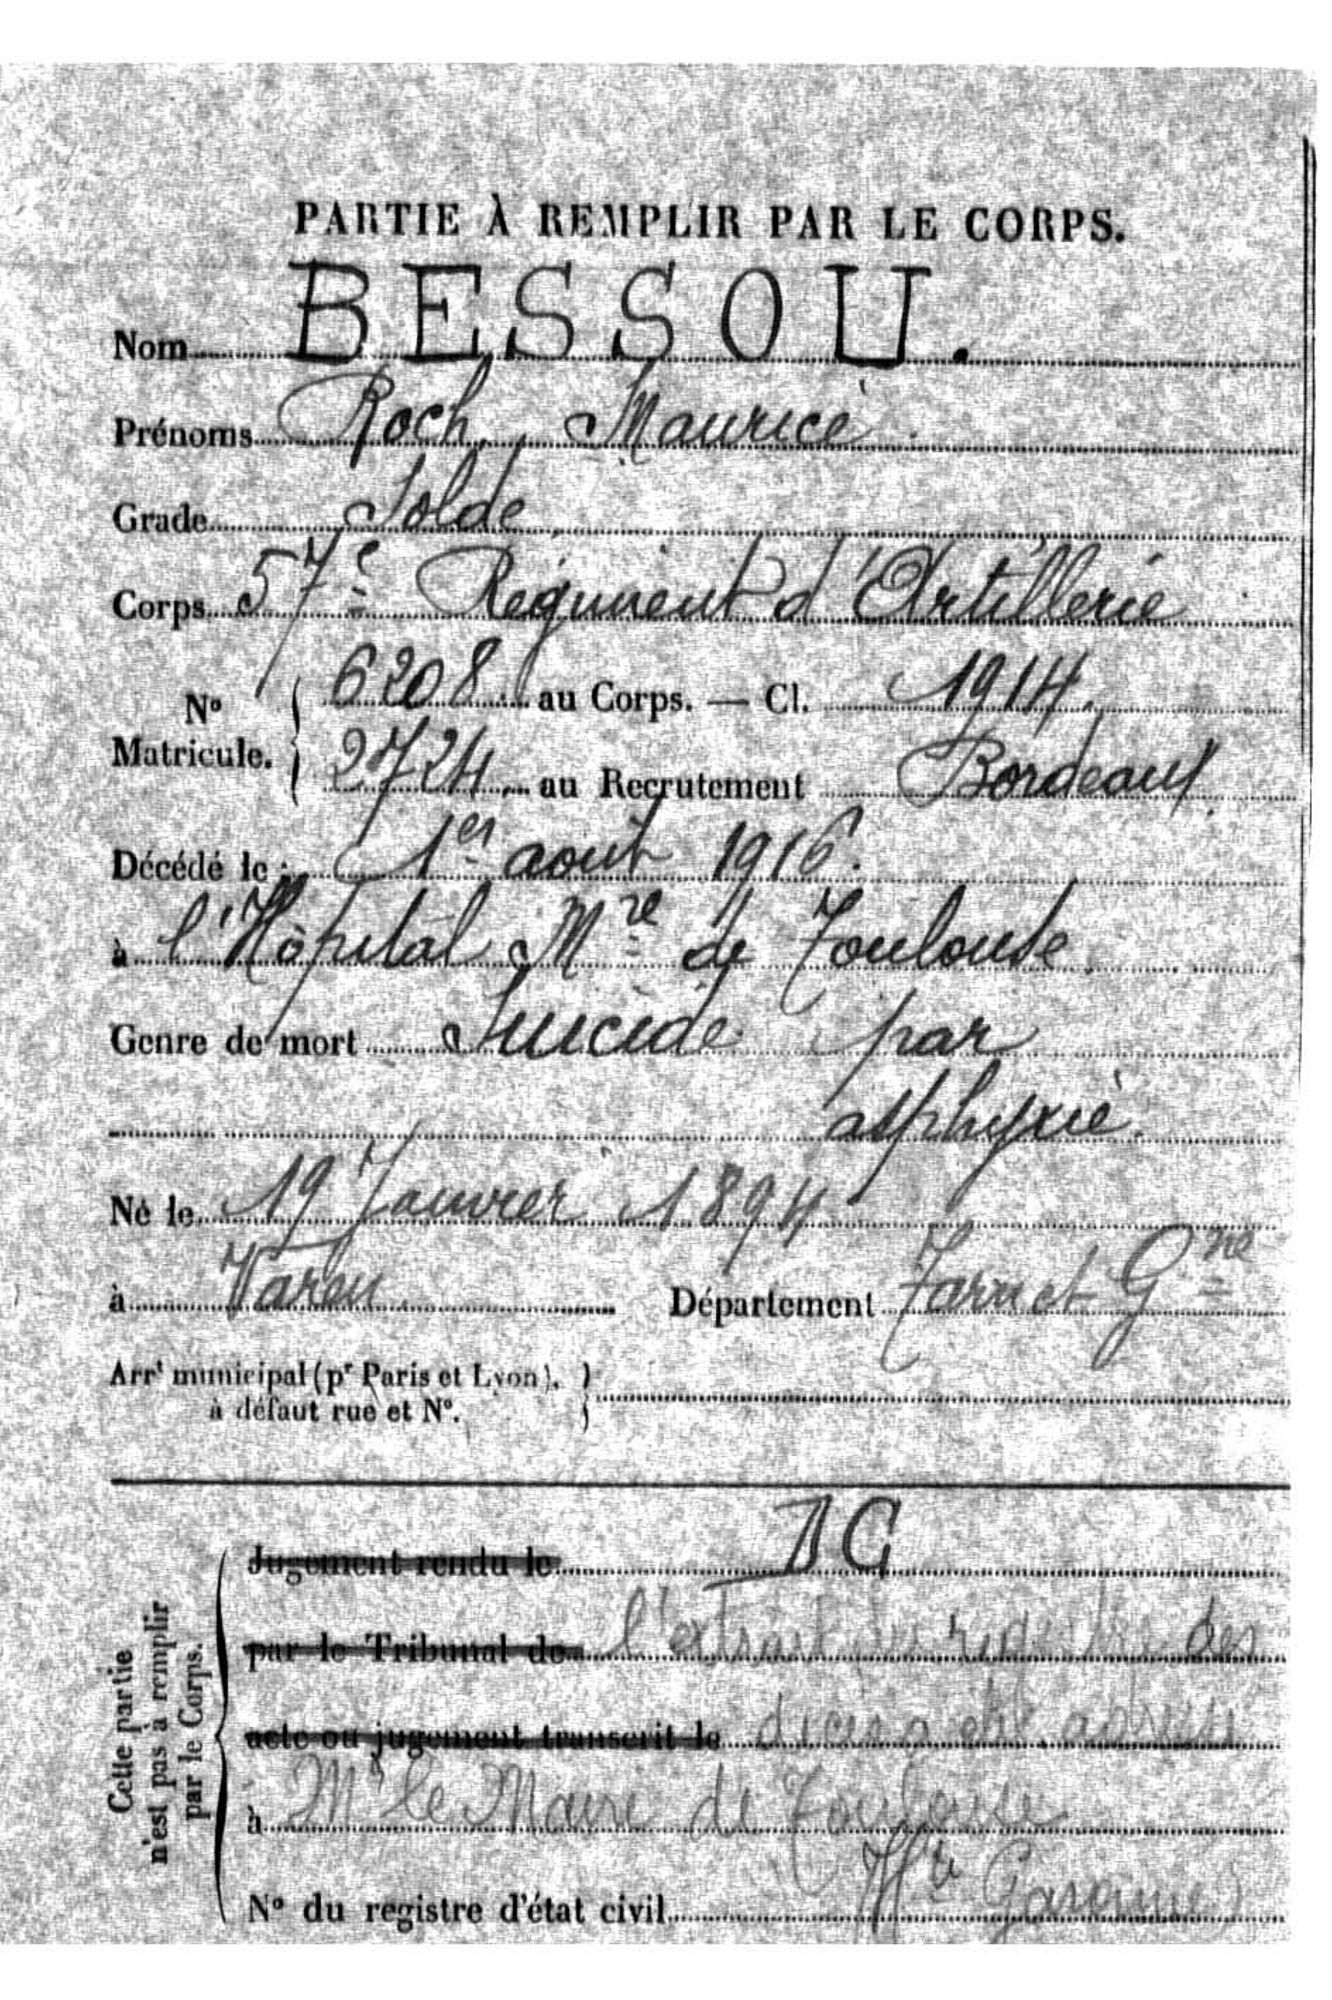 PARTIE À REMPLIR PAR LE CORPS.
Nom BESSOU.
Prénoms Roch, Maurice
Grade Solde
Corps 57e Régiment d'Artillerie
N° Matricule. 6208 au Corps. — Cl. 1914.
2724 au Recrutement Bordeaux
Décédé le 1er août 1916.
à l'Hôpital Mre de Toulouse
Genre de mort Suicide par
asphyxie.
Né le 19 Janvier 1894
à Varen Département Tarn et Gne
Arrt municipal (pr Paris et Lyon),
à défaut rue et N°.
Cette partie
n'est pas à remplir
par le Corps.
Jugement rendu le
par le Tribunal de l'extrait du registre des
acte ou jugement transcrit le décès a été adressé
à Mr le Maire de Toulouse
N° du registre d'état civil Hte Garonne)